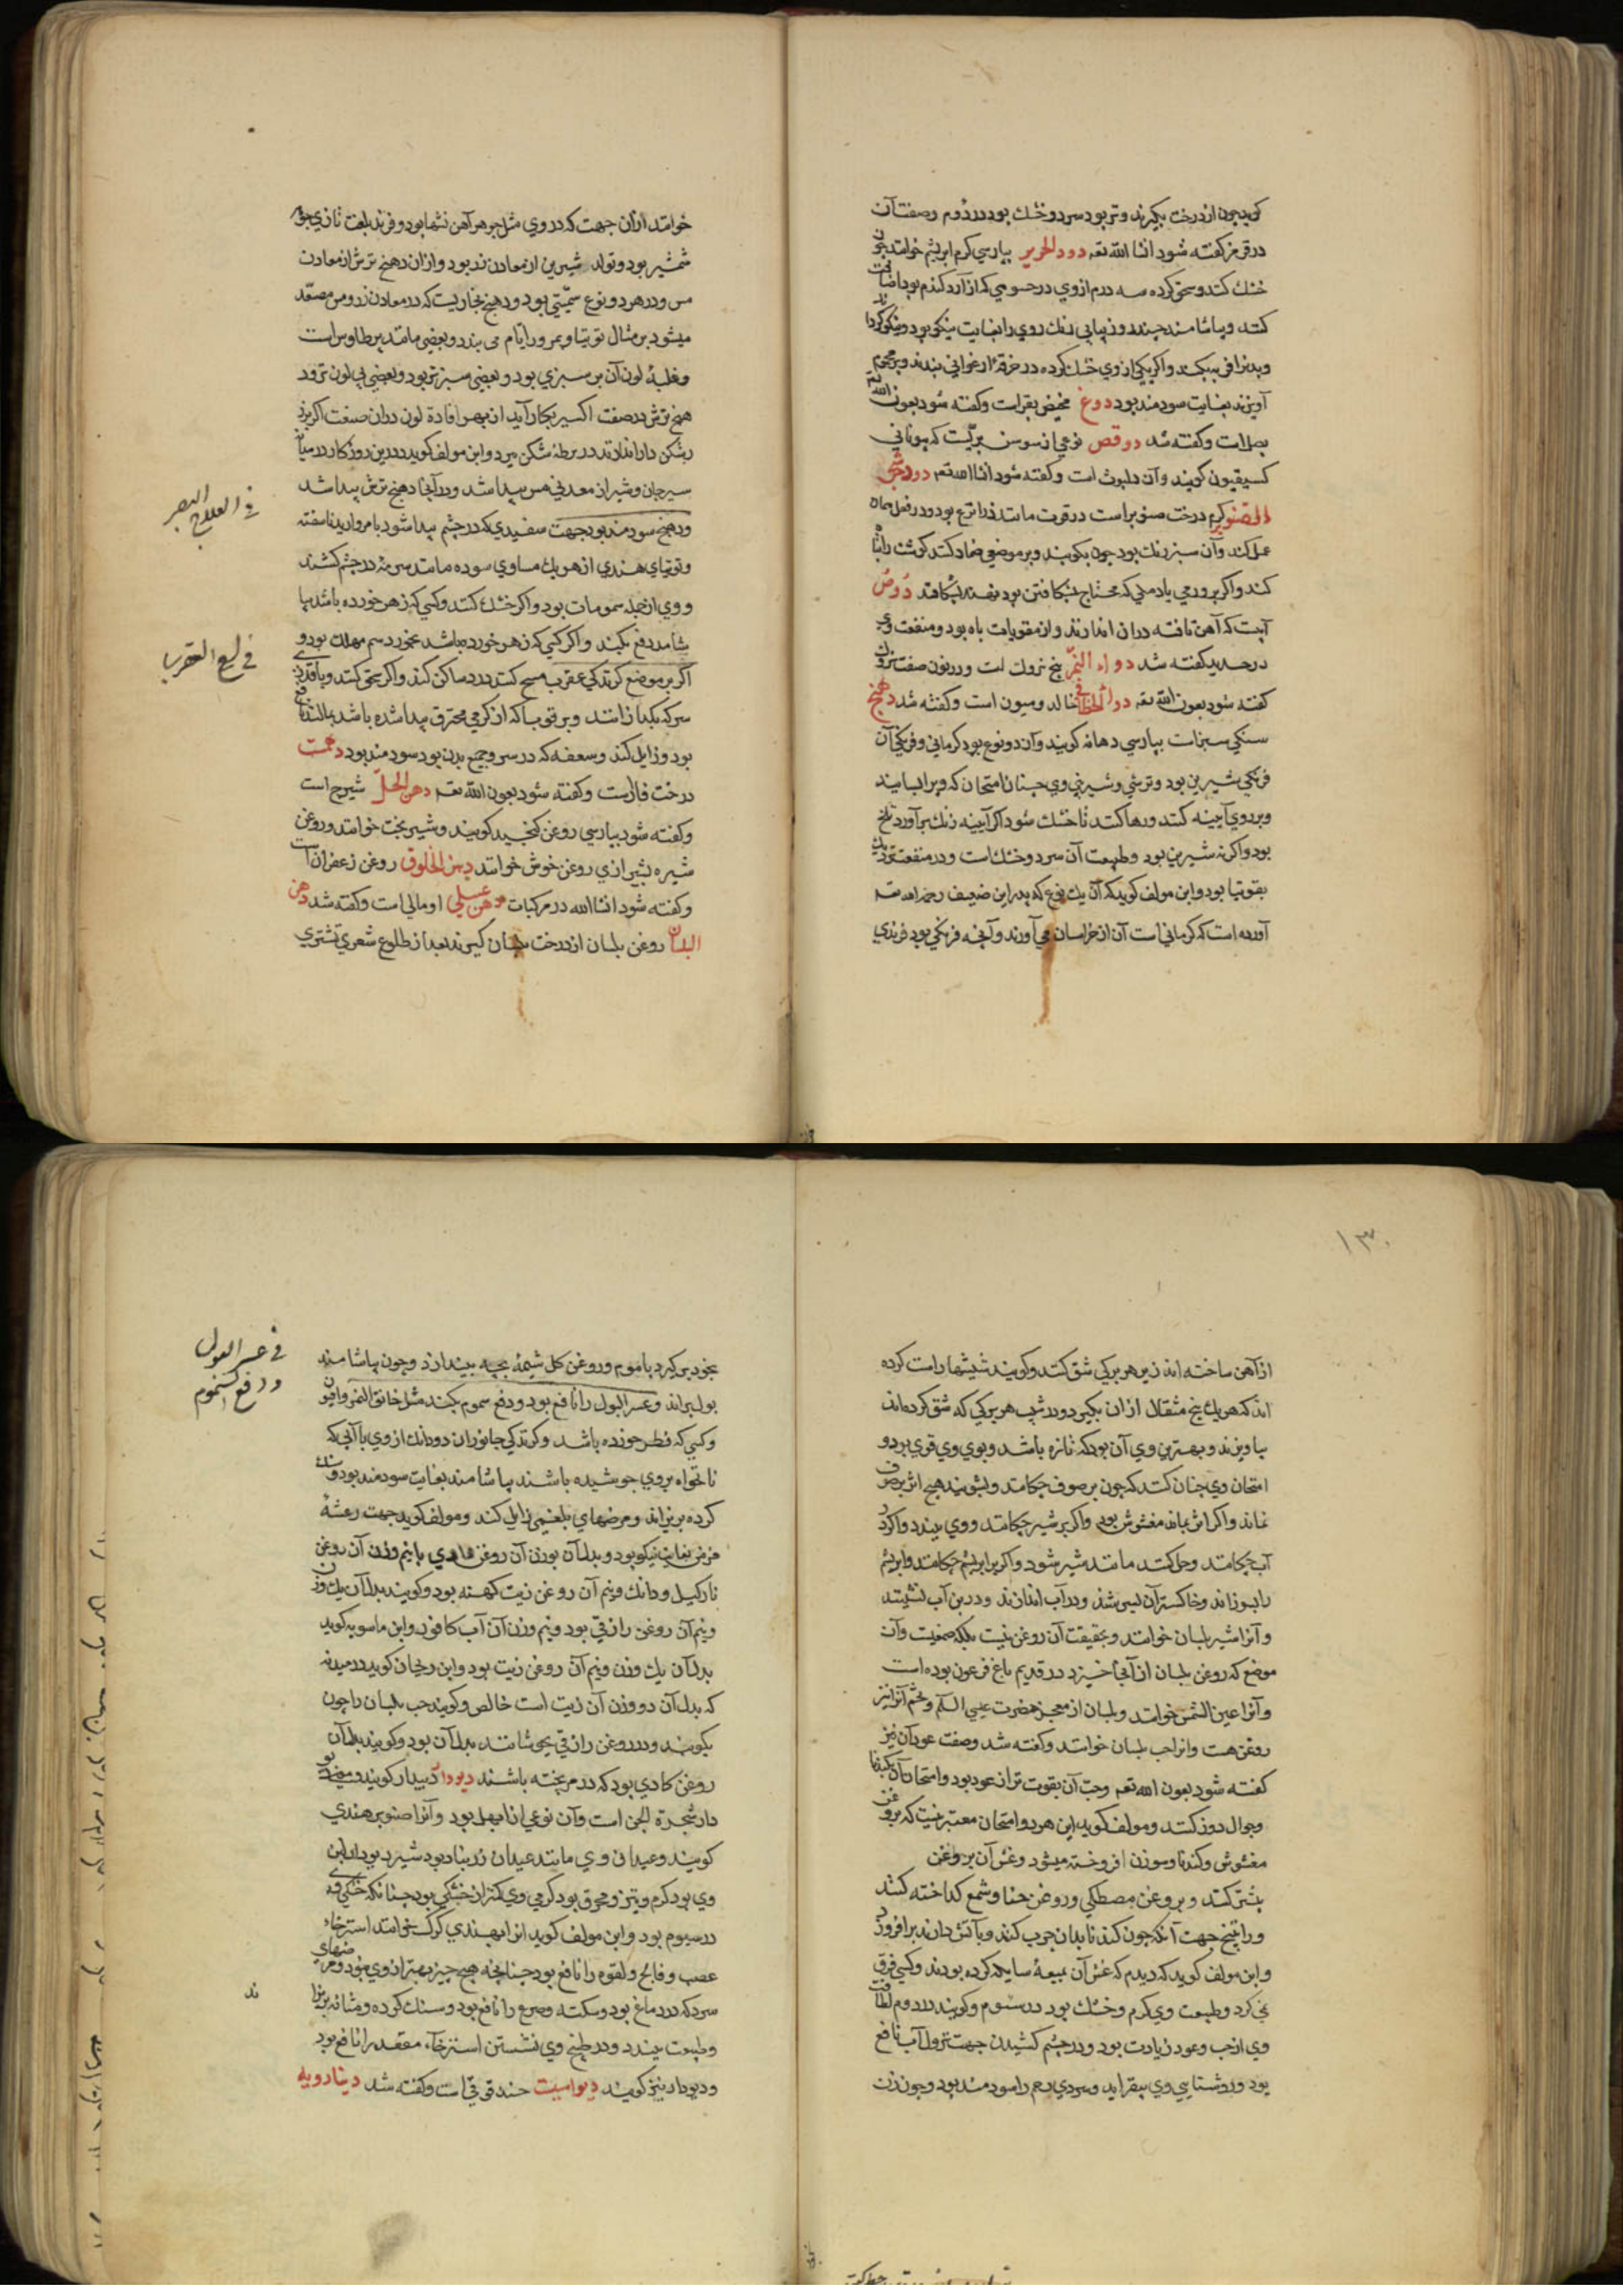 کویند چون از درخت بکیرند و تر بود سرد و خشك بود در دوم وصفت آن
در قرمز کفته شود انشا الله تعه دود الحریر بپارسی کرم ابریشم خوانند چون
خشك کنند و سحق کرده سه درم از وی در حسوی که از آرد کندم بود اضافت
کنند و بیاشامند چند روز پیاپی رنك روی را بغایت نیکو بود و نیکو کرداند
و بدن را فربه کند واکر یکی از وی خشك کرده در خرقۀ ارغوانی بندند و بر محموم
آویزند بغایت سودمند بود دوغ مخیض بقر است وکفته شود بعون الله تعه
بصل است وکفته شد دوقص نوعی از سوسن بریست که بیونانی
کسیفیون کویند وآن دلبوث است وکفته شود انشا الله تعه دود شجر
الصنوبر کرم درخت صنوبر است در قوت مانند ذراریح بود ودر فعل همان
عمل کند وآن سبز رنك بود چون بکوبند و بر موضعی ضماد کنند کوشت را تباه
کند واکر بر ورمی یا دملی که محتاج شکافتن بود نهند بشکافد دوص
آبیست که آهن تافته دران اندازند واز مقویات باه بود ومنفعت وی
در حدید کفته شد دواء النمر بیخ نزوك است ودر نون صفت نزوك
کفته شود بعون الله تعه دواء الخطاطیف خالدوسون است وکفته شد دهنج
سنکی سبزست بپارسی دهانه کویند وآن دو نوع بود کرمانی وفرنکی آن
فرنکی شیرین بود وترشی وشیرینی وی چنان امتحان که ویرا بسایند
وبر روی آیینه کنند ورها کنند تا خشك شود اکر آیینه زنك برآورد تلخ
بود واکر نه شیرین بود وطبیعت آن سرد وخشك است ودر منفعت نزدیك
بقوتیا بود وابن مولف کوید که آن یك نوع که پدر این ضعیف رحمه الله تعه
آورده است که کرمانی است آن از خراسان می آورند وآنچه فرنکی بود فرندی
خوانند ازان جهت که در وی مثل جوهر آهن نشها بود وفرند بلغت تازی جوهر
شمشیر بود وتولد شیرین از معادن زر بود وازان دهنج ترش از معادن
مس ودر هر دو نوع سمیتی بود ودهنج بخاریست که در معادن زر ومس مصعد
میشود بر مثال توتیا وبمرور ایام می بندد وبعضی مانند پر طاوس است
وغلبۀ لون آن بر سبزی بود وبعضی سبزتر بود وبعضی بی لون تر ود
هنج ترش در صفت اکسیر بکار آید از بهر افادۀ لون دران صنعت اکر بزر
بشکن دار اندازند در برطۀ شکن میرد وابن مولف کوید در این روزکار در میان
سیرجان وشیراز معدنی مس پیدا شد ودر آنجا دهنج ترش پیدا شد
ودهنج سودمند بود جهت سفیدی که در چشم پیدا شود با مروارید ناسفته
وتوتیای هندی از هر یك مساوی سوده مانند سرمه در چشم کشند
ووی از جمله سمومات بود واکر خشك کنند وکسی که زهر خورده باشد بیا
شامد دفع بکند واکر کسی که زهر خورده نباشد بخورد سم مهلك بود و
اکر بر موضع کزندکی عقرب مسح کنند درد ساکن کند واکر سحق کنند وبا قدری
سرکه بکدازانند وبر قوبا که از کرمی محترق پیدا شده باشد بمالند نافع
بود وزایل کند وسعفه که در سر وجمیع بدن بود سودمند بود دهمست
درخت غارست وکفته شود بعون الله تعه دهن الحل شیرج است
وکفته شود بپارسی روغن کنجید کویند وشیر بخت خوانند وروغن
شیره شیرازی روغن خوش خوانند دهن الخلوق روغن زعفران است
وکفته شود انشا الله در مرکبات دهن عسلی اومالی است وکفته شد دهن
البلسان روغن بلسان از درخت بلسان کیرند بعد از طلوع شعری تشتری
فی العلاج البصر
فی لسع العقرب
۱۳۰
از آهن ساخته اند زیر هر برکی شق کنند وکویند شیشها راست کرده
اند که هر یك پنج مثقال ازان بکیرد ودر شیب هر برکی که شق کرده اند
بیاویزند وبهترین وی آن بود که تازه باشد وبوی وی قوی بود و
امتحان وی چنان کنند که چون بر صوف چکانند وبشویند هیچ اثر بر صوف
نماند واکر اثر بماند مغشوش بود واکر بر شیر چکانند ووی ببندد واکر در
آب چکانند وحل کنند مانند شیر شود واکر بر ابریشم چکانند وابریشم
را بسوزاند وخاکستر آن لیسی شذ ودر آب اندازند ودر بن آب نشیند
وآنرا شیر بلسان خوانند وبحقیقت آن روغن نیست بلکه صمغیست وآن
موضع که روغن بلسان از آنجا خیزد در قدیم باغ فرعون بوده است
وآنرا عین الشمس خوانند وبلسان از معجز حضرت عیسی السلم وتخم آنرا نیز
روغن هست وانرا حب بلسان خوانند وکفته شد وصفت عود آن نیز
کفته شود بعون الله تعه وحب آن بقوت تر از عود بود وامتحان آن بکبریا
وبجوال دوز کنند ومولف کوید این هر دو امتحان معتبر نیست که بروغن
مغشوش وکندنا وسوزن افروخته میشود وغش آن بروغن
بشتر کنند وبروغن مصطکی وروغن حنا وشمع کداخته کنند
وراتینج جهت آنکه چون کندنا بدان چرب کنند وبآتش دارند برافروزد
وابن مولف کوید که دیدم که غش آن بمیعۀ سایله کرده بودند وکسی فرق
نمی کرد وطبیعت وی کرم وخشك بود در سوم وکویند در دوم لطافت
وی از حب وعود زیادت بود ودر چشم کشیدن جهت نزول آب نافع
بود وروشنایی وی بیفزاید وسردی رحم را سودمند بود وچون زن
بخود برکیرد با موم وروغن کل شیمۀ بچه بیندازد وچون بیاشامند
بول براند وعسر البول را نافع بود ودفع سموم بکند مثل خانق النمر وافیون
وکسی که فطر خورده باشد وکزندکی جانوران دودانك از وی با آبی که
نانخواه بر وی جوشیده باشند بیاشامند بغایت سودمند بود وسنك
کرده بریزاند ومرضهای بلغمی زایل کند ومولف کوید جهت رعشۀ
مزمن بغایت نیکو بود وبدل آن بوزن آن روغن کادی یا نیم وزن آن روغن
نارکیل ودانك ونیم آن روغن زیت کهنه بود وکویند بدل آن یك وزن
ونیم آن روغن رازقی بود ونیم وزن آن آب کافور وابن ماسویه کوید
بدل آن یك وزن ونیم آن روغن زیت بود وابن ریحان کوید در صیدنه
که بدل آن دو وزن آن زیت است خالص وکویند حب بلسان را چون
بکوبند ودر روغن رازقی بجوشانند بدل آن بود وکویند بدل آن
روغن کادی بود که در مرهخته باشند دیودار دیبدار کویند وصنوبر
دار شجرة الجن است وآن نوعی از ابهل بود وآنرا صنوبر هندی
کویند وعیدان وی مانند عیدان زرنباد بود شیر دیودار لبن
وی بود کرم وتیز ومحرق بود کرمی وی کمتر از خشکی بود چنانکه خشکی وی
در سیوم بود وابن مولف کوید انرا بهندی کرك خوانند استرخاء
عصب وفالج ولقوه را نافع بود چنانچه هیچ چیز بهتر از وی نبود ومرضهای
سرد که در دماغ بود وسکته وصرع را نافع بود وسنك کرده ومثانه بریزاند
وطبیعت ببندد ودر طبیخ وی نشستن استرخاء مقعد را نافع بود
ودیودار نیز کویند دیواسپست حندقوقی است وکفته شد دینارویه
فی عسر البول
ودفع السموم